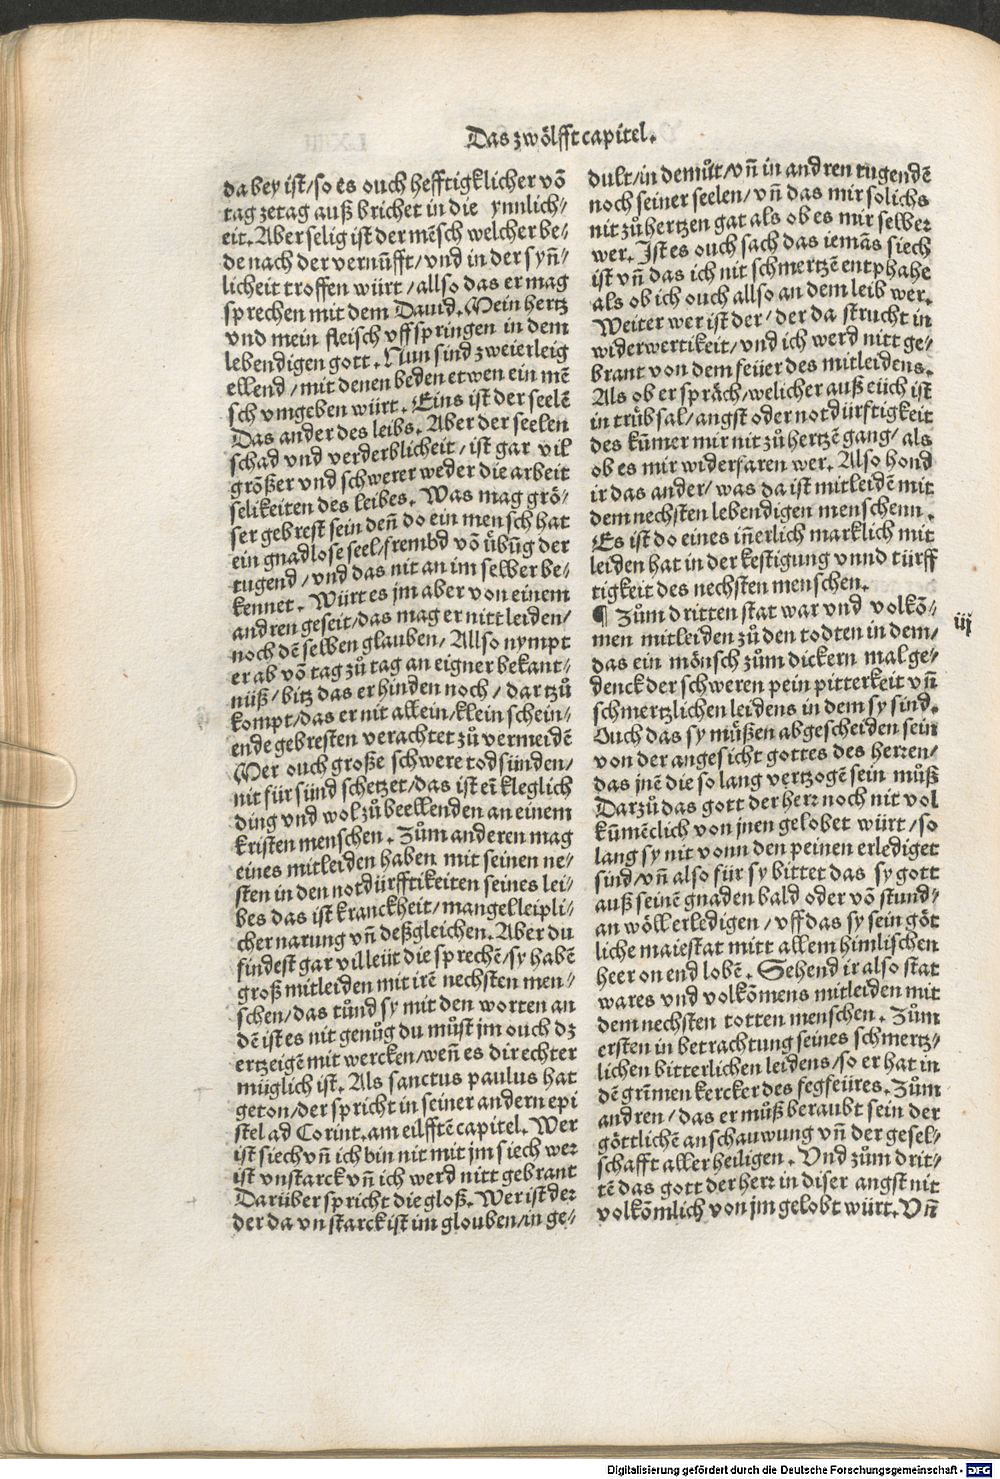 Das zwölfft capitel.
da bey ist/so es ouch hefftigklicher võ
tag zetag auß brichet in die ynnlich⸗
eit. Aber selig ist der mẽsch welcher be⸗
de nach der vernũfft/vnd in der syñ⸗
licheit troffen würt/allso das er mag
sprechen mit dem Dauid. Mein hertz
vnd mein fleisch vffspringen in dem
lebendigen gott. Nun sind zweierleig
ellend/mit denen beden etwen ein mẽ
sch vmgeben würt. Eins ist der seelẽ
Das ander des leibs. Aber der seelen
schad vnd verderblicheit/ist gar vil
größer vnd schwerer weder die arbeit
selikeiten des leibes. Was mag grö⸗
ser gebrest sein deñ do ein mensch hat
ein gnadlose seel/frembd võ ůbũg der
tugend/vnd das nit an im selber be⸗
kennet. Würt es jm aber von einem
andren geseit/das mag er nitt leiden/
noch dẽ selben glauben/Allso nympt
er ab võ tag zů tag an eigner bekant⸗
nüß/bitz das er hinden noch/dar tzů
kompt/das er nit allein/klein schein⸗
ende gebresten verachtet zů vermeidẽ
Mer ouch große schwere todsünden/
nit für sünd schetzet/das ist eĩ kleglich
ding vnd wol zů beellenden an einem
kristen menschen. Zům anderen mag
eines mitleiden haben mit seinen ne⸗
sten in den notdürfftikeiten seines lei⸗
bes das ist kranckheit/mangel leipli⸗
cher narung vñ deßgleichen. Aber du
findest gar vil leüt die sprechẽ/sy habẽ
groß mitleiden mit irẽ nechsten men⸗
schen/das tůnd sy mit den worten an
dẽ ist es nit genůg du můst jm ouch dz
ertzeigẽ mit wercken/weñ es dir echter
müglich ist. Als sanctus paulus hat
geton/der spricht in seiner andern epi
stel ad Corint. am eilfftẽ capitel. Wer
ist siech vñ ich bin nit mit jm siech wer
ist vnstarck vñ ich werd nitt gebrant
Darüber spricht die gloß. Wer ist der
der da vnstarck ist im glouben/in ge⸗
dult/in demůt/vñ in andren tugendẽ
noch seiner seelen/vñ das mir solichs
nit zů hertzen gat als ob es mir selber
wer. Ist es ouch sach das iemãs siech
ist vñ das ich nit schmertzẽ entphahe
als ob ich ouch allso an dem leib wer.
Weiter wer ist der/der da strucht in
widerwertikeit/vnd ich werd nitt ge⸗
brant von dem feüer des mitleidens.
Als ob er spräch/welicher auß eüch ist
in trübsal/angst oder notdürftigkeit
des kũmer mir nit zů hertzẽ gang/als
ob es mir widerfaren wer. Also hond
ir das ander/was da ist mitleidẽ mit
dem nechsten lebendigen menschenn.
Es ist do eines iñerlich marklich mit
leiden hat in der kestigung vnnd türff
tigkeit des nechsten menschen.
¶ Zům dritten stat war vnd volkõ⸗
men mitleiden zů den todten in dem/
das ein mönsch zům dickern mal ge⸗
denck der schweren pein pitterkeit vñ
schmertzlichen leidens in dem sy sind.
Ouch das sy můßen abgescheiden sein
von der angesicht gottes des herren/
das jnẽ die so lang vertzogẽ sein můß
Darzů das gott der herr noch nit vol
kũmẽclich von jnen gelobet würt/so
lang sy nit vonn den peinen erlediget
sind/vñ also für sy bittet das sy gott
auß seinẽ gnaden bald oder võ stund⸗
an wöll erledigen/vff das sy sein göt
liche maiestat mitt allem himlischen
heer on end lobẽ. Sehend ir also stat
wares vnd volkõmens mitleiden mit
dem nechsten totten menschen. Zům
ersten in betrachtung seines schmertz⸗
lichen bitterlichen leidens/so er hat in
dẽ grĩmen kercker des fegfeüres. Zům
andren/das er můß beraubt sein der
göttlichẽ anschauwung vñ der gesel⸗
schafft aller heiligen. Vnd zům drit⸗
tẽ das gott der herr in diser angst nit
volkõmlich von jm gelobt würt. Vñ
iij
Digitalisierung gefördert durch die Deutsche Forschungsgemeinschaft - DFG